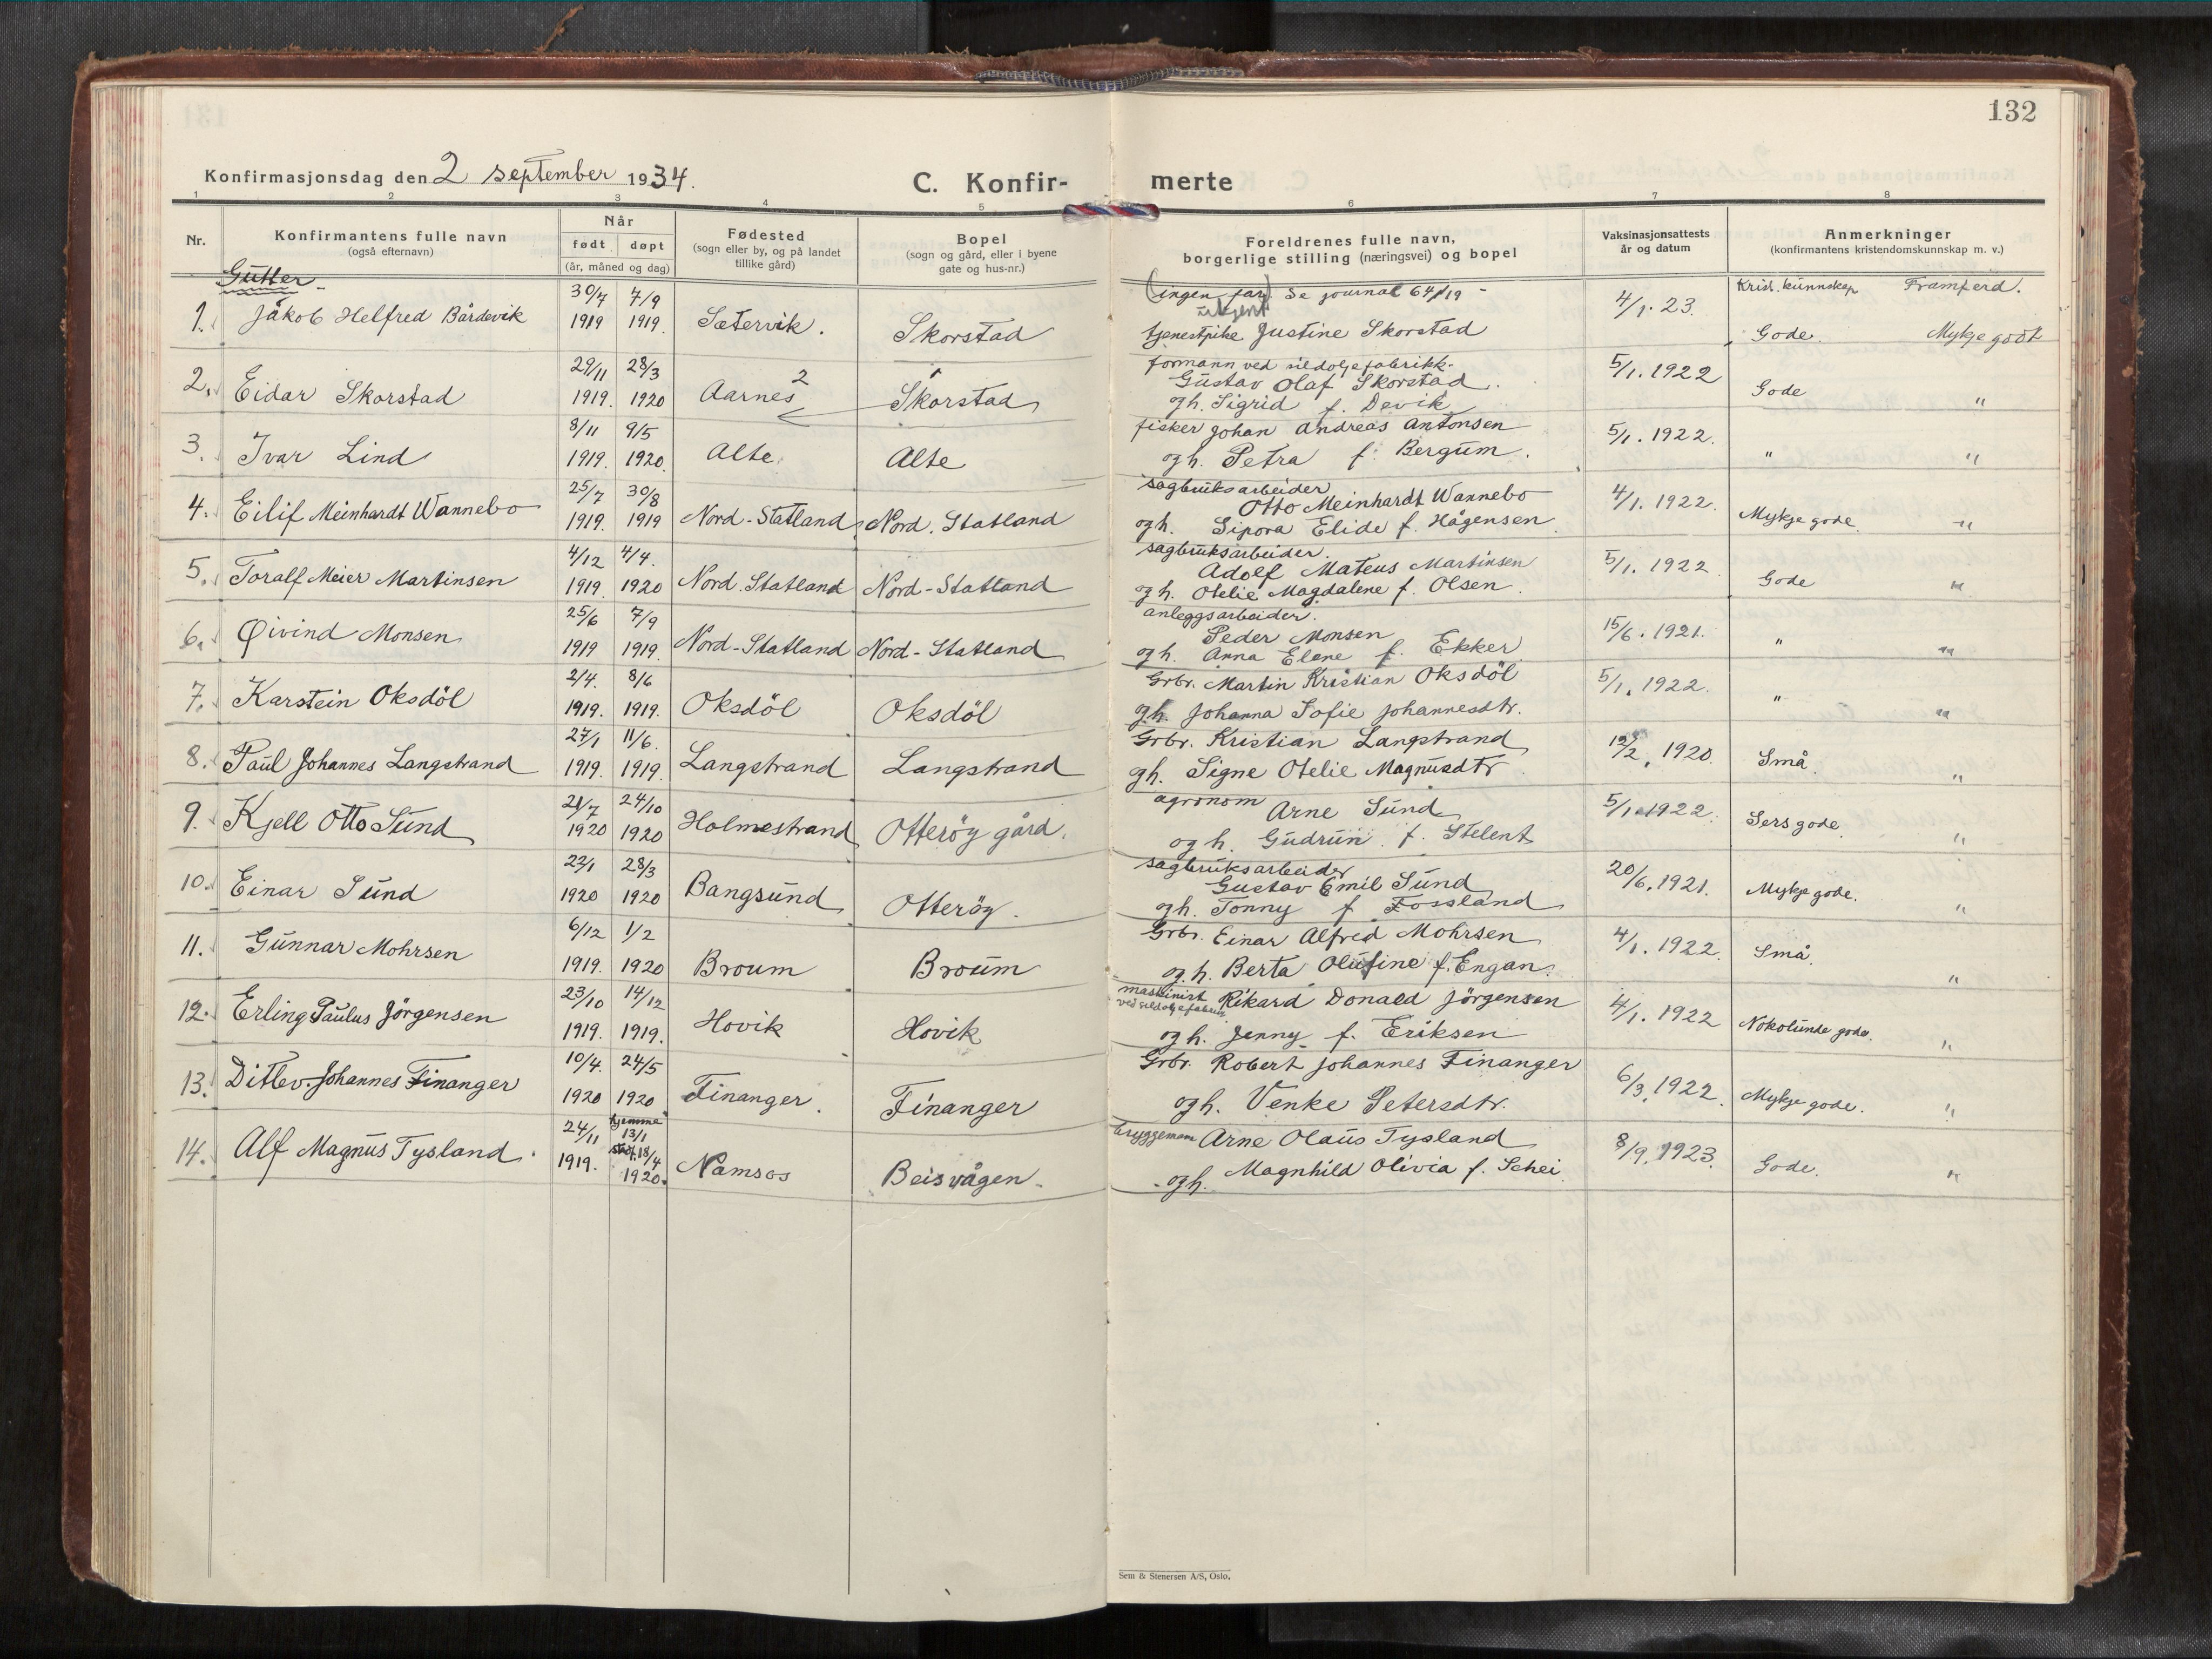 132
Konfirmasjonsdag den 2 september 1934.
C. Konfir-
merte
1 2 3 4 5 6 7 8
Nr.
Konfirmantens fulle navn
(også efternavn)
Når
født døpt
(år, måned og dag)
Fødested
(sogn eller by, og på landet
tillike gård)
Bopel
(sogn og gård, eller i byene
gate og hus-nr.)
Foreldrenes fulle navn,
borgerlige stilling (næringsvei) og bopel
Vaksinasjonsattests
år og datum
Anmerkninger
(konfirmantens kristendomskunnskap m. v.)
Gutter
Krist. kunnskap Framferd.
30/7 7/9 (ingen far) Se journal 64/19 - 4/1. 23.
1. Jakob Helfred Bårdevik 1919 1919. Sætervik. Skorstad tjenestpike Justine Skorstad Gode. Mykje godt
29/11 28/3 formann ved sildoljefabrikk. 5/1. 1922
2. Eidar Skorstad 1919. 1920 Aarnes 2 Skorstad Gustav Olaf Skorstad. Gode "
og h. Sigrid f. Devik
8/11 9/5 fisker Johan Andreas Antonsen 5/1. 1922.
3. Ivar Lind 1919. 1920. Alte. Alte og h. Petra f. Bergum. " "
25/7 30/8 sagbruksarbeider 4/1. 1922.
4. Eilif Meinhardt Wannebo 1919. 1919 Nord-Statland Nord. Statland Otto Meinhardt Wannebo Mykje gode. "
og h. Sipora Elide f. Hågensen
4/12 4/4. sagbruksarbeider. 5/1. 1922
5. Toralf Meier Martinsen 1919. 1920 Nord. Statland Nord-Statland Adolf Mateus Martinsen Gode "
og h. Otelie Magdalene f. Olsen
25/6 7/9 anleggsarbeider. 15/6. 1921.
6. Øivind Monsen 1919 1919. Nord-Statland Nord-Statland Peder Monsen " "
og h. Anna Elene f. Ekker
2/4. 8/6 Grbr. Martin Kristian Oksdöl 5/1. 1922.
7. Karstein Oksdöl 1919. 1919. Oksdöl Oksdöl og h. Johanna Sofie Johannesdtr. " "
27/1 11/6. Grbr. Kristian Langstrand 12/2. 1920.
8. Paul Johannes Langstrand 1919. 1919. Langstrand Langstrand og h. Signe Otelie Magnusdtr Små. "
21/7 24/10 agronom Arne Sund 5/1 1922.
9. Kjell Otto Sund 1920 1920 Holmestrand Otteröy gård. og h. Gudrun f. Stelent Sers gode. "
22/1 28/3 sagbruksarbeider 20/6. 1921.
10. Einar Sund 1920 1920 Bangsund Otteröy. Gustav Emil Sund Mykje gode. "
og h. Tonny f. Fossland
6/12 1/2 Grbr. Einar Alfred Mohrsen 4/1. 1922.
11. Gunnar Mohrsen 1919. 1920 Broum Broum og h. Berta Olufine f. Engan. Små. "
23/10 14/12 maskinist ved sildoljefabrikk Rikard Donald Jörgensen 4/1. 1922
12. Erling Paulus Jörgensen 1919. 1919. Hovik Hovik og h. Jenny f. Eriksen Nokolunde gode. "
10/4. 24/5 Grbr. Robert Johannes Finanger 6/3. 1922.
13. Ditlev Johannes Finanger 1920 1920 Finanger. Finanger og h. Venke Petersdtr. Mykje gode. "
24/11 hjemme 13/1 bryggemann Arne Olaus Tysland 8/9. 1923.
14. Alf Magnus Tysland. 1919. stadf. 18/4 1920. Namsos Beisvågen. og h. Magnhild Olivia f. Schei Gode. "
Sem & Stenersen A/S, Oslo.